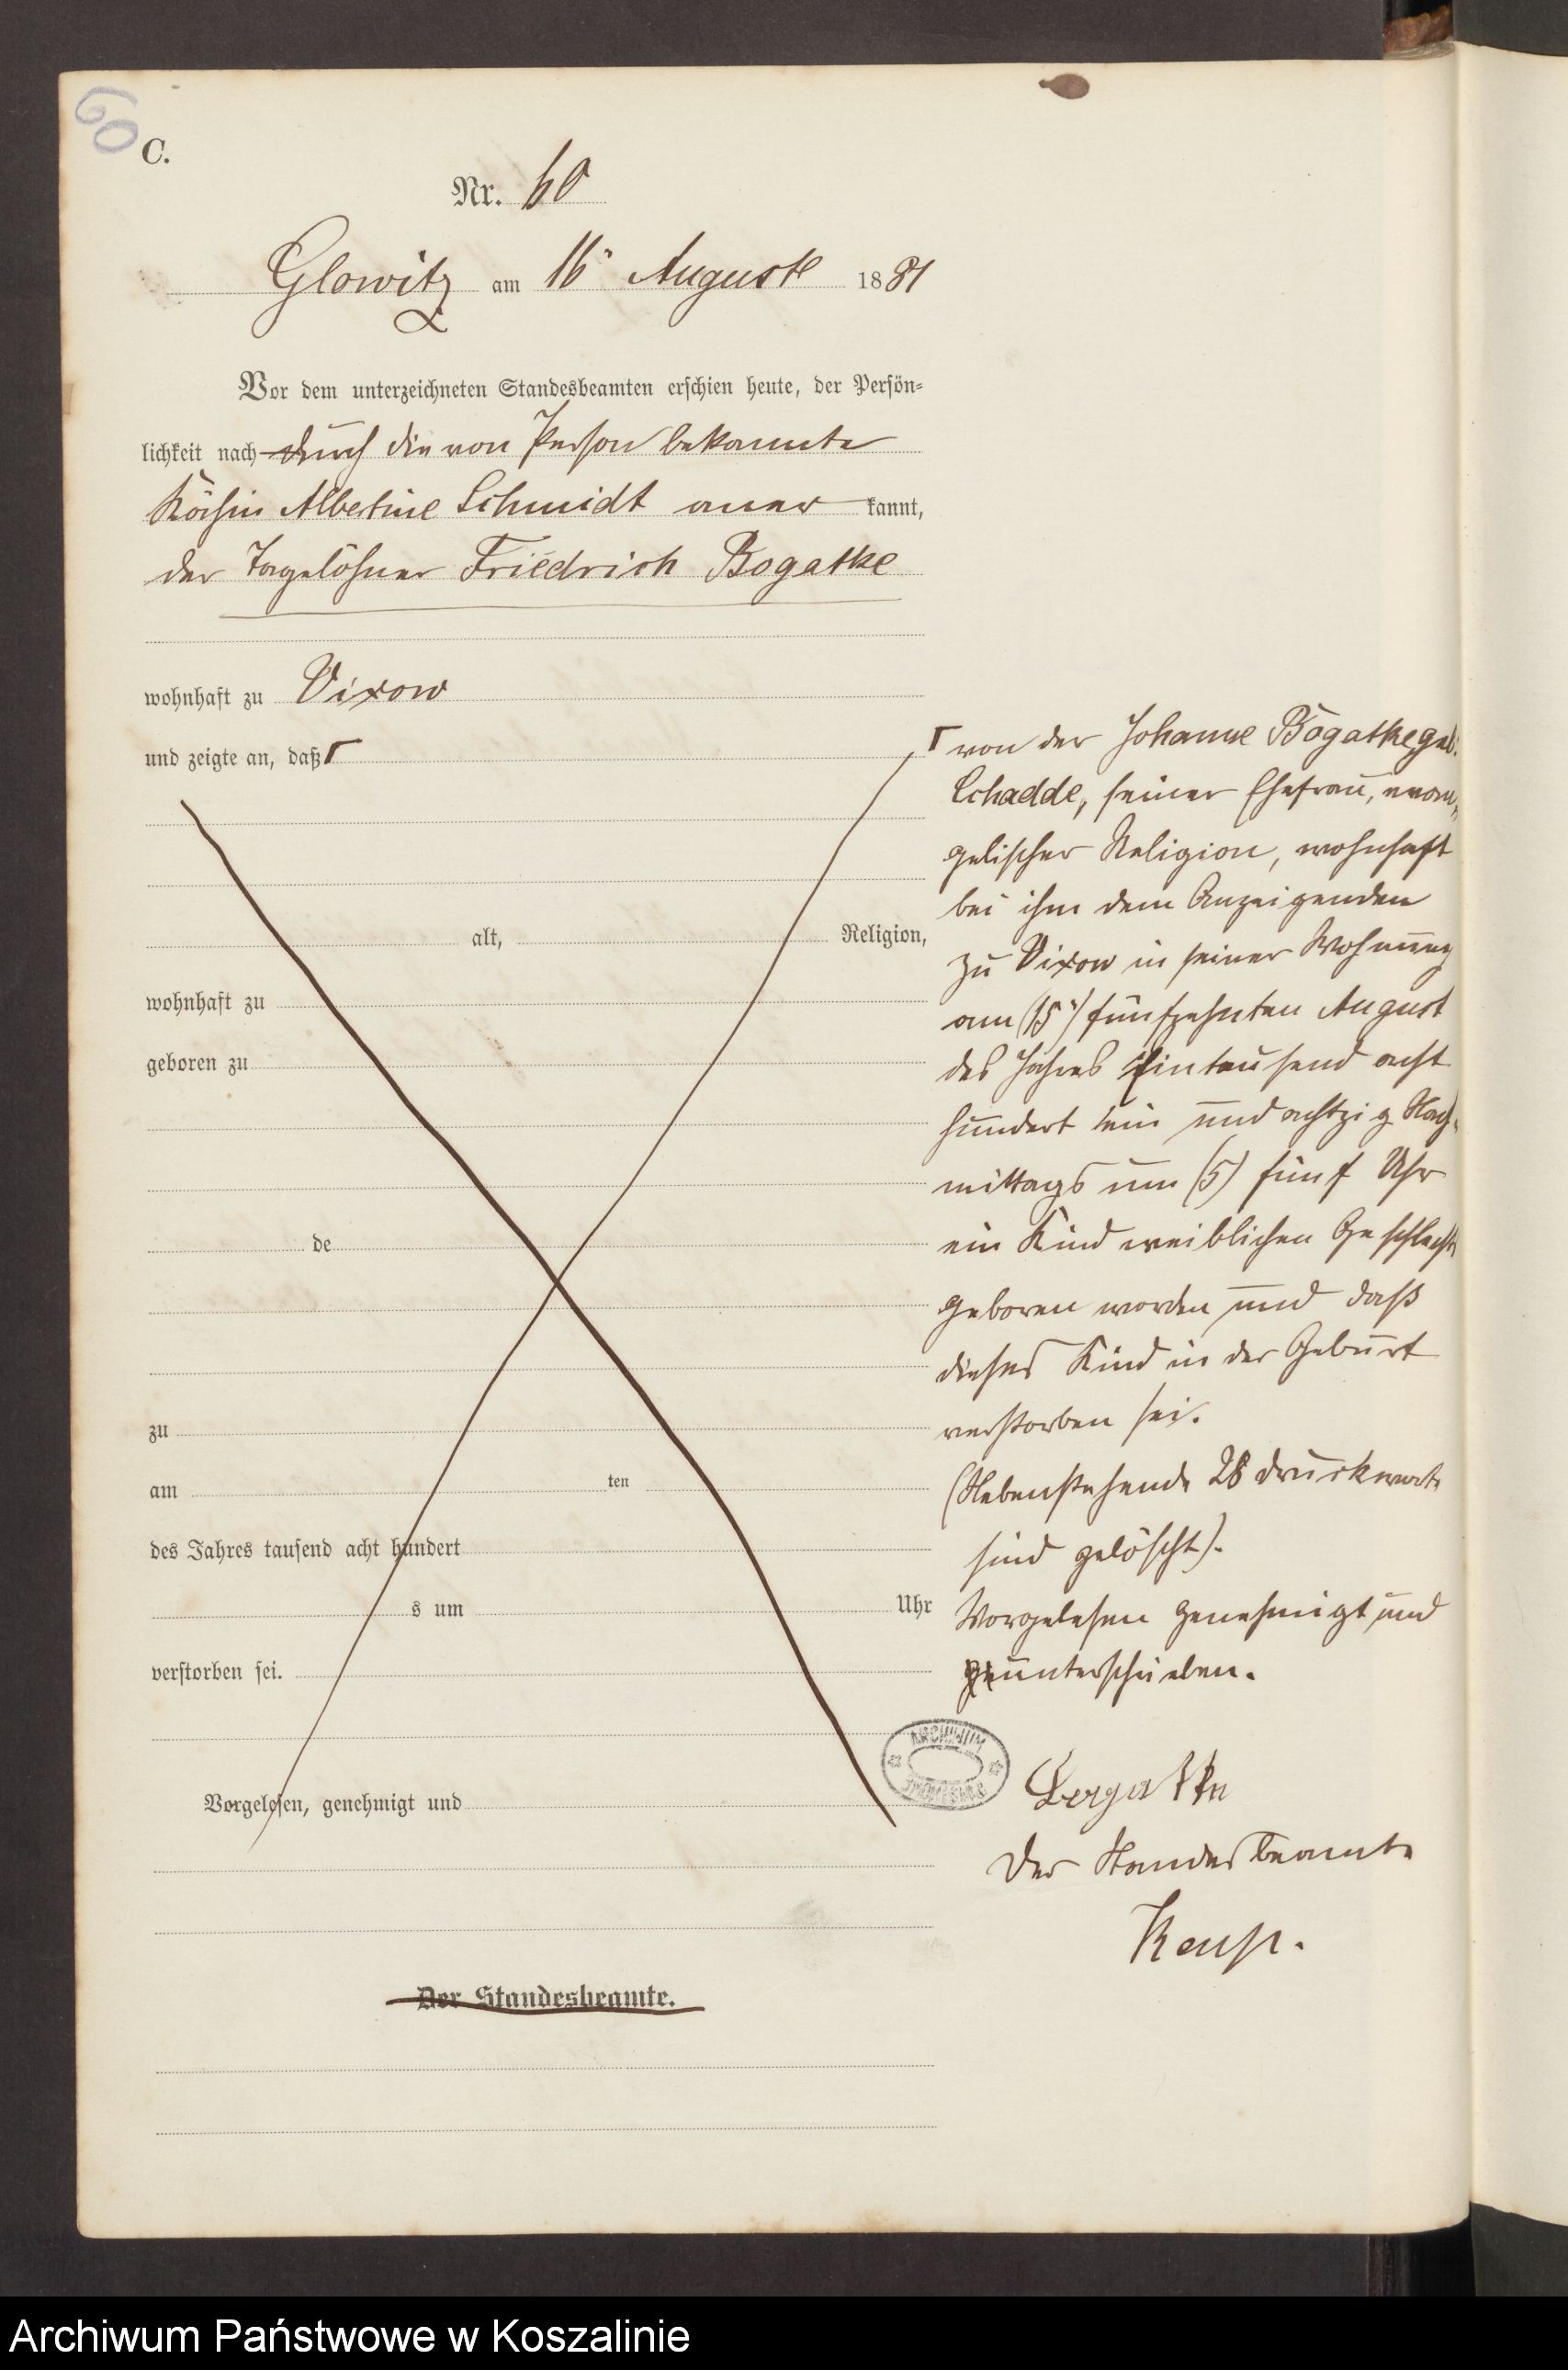 60
C.
Nr. 60
Glowitz am 16" August 1881
Vor dem unterzeichneten Standesbeamten erschien heute, der Persön-
lichkeit nach durch die von Person bekannte
Köchin Albertine Schmidt aner kannt,
der Tagelöhner Friedrich Bogatke
wohnhaft zu Vixow
und zeigte an, daß Γ
alt, Religion,
wohnhaft zu
geboren zu
de
zu
am ten
des Jahres tausend acht hundert
s um Uhr
verstorben sei.
Vorgelesen, genehmigt und
Der Standesbeamte.
Γ von der Johanne Bogatke geb.
Schadde, seiner Ehefrau, evan-
gelischer Religion, wohnhaft
bei ihm dem Anzeigenden
zu Vixow in seiner Wohnung
am (15") fünfzehnten August
des Jahres Eintausend acht
hundert ein und achtzig Nach-
mittags um (5) fünf Uhr
ein Kind weiblichen Geschlechts
geboren worden und daß
dieses Kind in der Geburt
verstorben sei.
(Nebenstehende 28 Druckworte
sind gelöscht).
Vorgelesen genehmigt und
unterschrieben.
ARCHIWUM
Der Standesbeamte
Archiwum Państwowe w Koszalinie